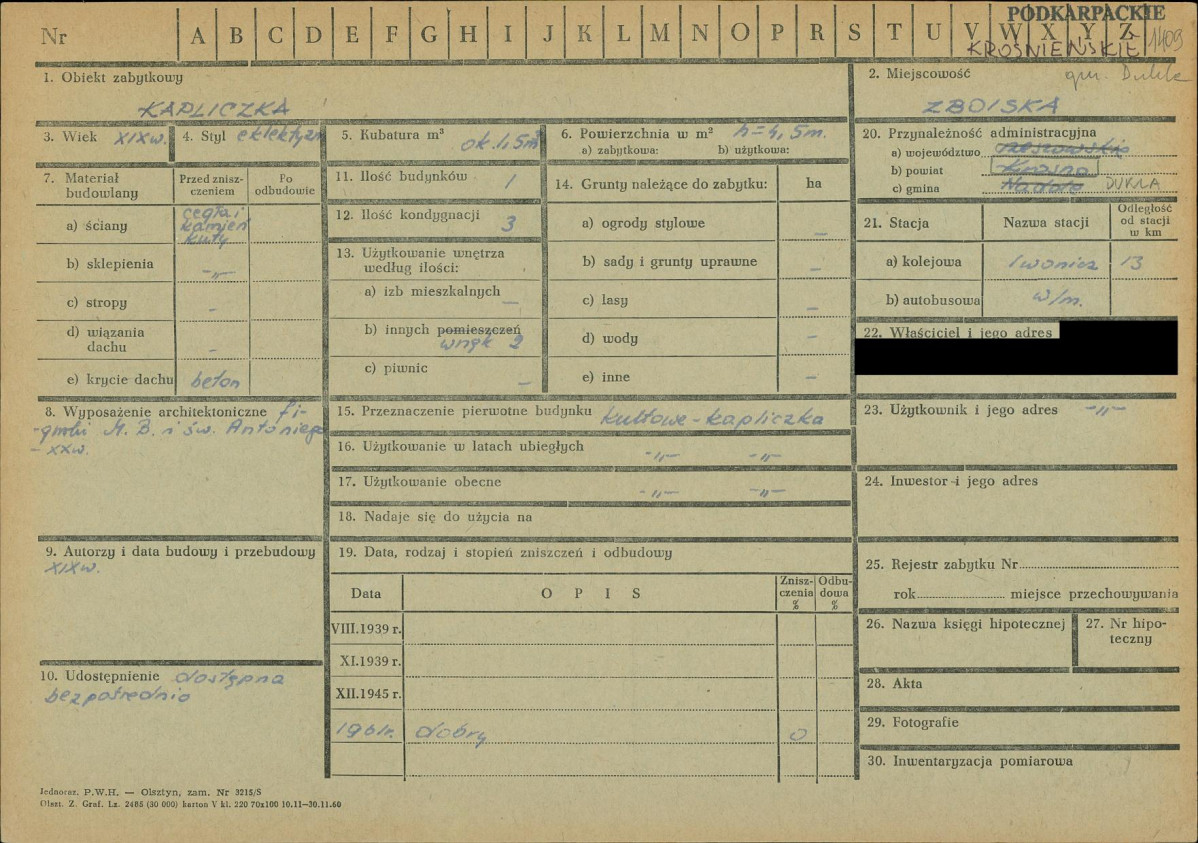 Nr A B C D E F G H I J K L M N O P R S T U V W X Y Z
PODKARPACKIE
KROŚNIEŃSKIE 1409
gm. Dukla
1. Obiekt zabytkowy
KAPLICZKA
2. Miejscowość
ZBOISKA
3. Wiek XIXw.
4. Styl eklektyzm
5. Kubatura m³
ok. 1,5m³
6. Powierzchnia w m² h=4,5m.
a) zabytkowa: b) użytkowa:
7. Materiał budowlany
Przed zniszczeniem
Po odbudowie
a) ściany cegła i
kamień
kuty
b) sklepienia -„-
c) stropy -
d) wiązania
dachu -
e) krycie dachu beton
8. Wyposażenie architektoniczne fi-
-gurki M.B. i św. Antoniego
- XXw.
9. Autorzy i data budowy i przebudowy
XIXw.
10. Udostępnienie dostępna
bezpośrednio
11. Ilość budynków 1
12. Ilość kondygnacji 3
13. Użytkowanie wnętrza
według ilości:
a) izb mieszkalnych -
b) innych pomieszczeń
wnęk 2
c) piwnic -
14. Grunty należące do zabytku: ha
a) ogrody stylowe -
b) sady i grunty uprawne -
c) lasy -
d) wody -
e) inne -
15. Przeznaczenie pierwotne budynku kultowe-kapliczka
16. Użytkowanie w latach ubiegłych -„- -„-
17. Użytkowanie obecne -„- -„-
18. Nadaje się do użycia na
19. Data, rodzaj i stopień zniszczeń i odbudowy
Data OPIS Zniszczenia % Odbudowa %
VIII.1939 r.
XI.1939 r.
XII.1945 r.
1961r. dobry 0
20. Przynależność administracyjna
a) województwo rzeszowskie
b) powiat Krosno
c) gmina DUKLA
21. Stacja Nazwa stacji Odległość
od stacji
w km
a) kolejowa Iwonicz 13
b) autobusowa w/m.
22. Właściciel i jego adres
23. Użytkownik i jego adres -„-
24. Inwestor i jego adres
25. Rejestr zabytku Nr
rok miejsce przechowywania
26. Nazwa księgi hipotecznej
27. Nr hipo-
teczny
28. Akta
29. Fotografie
30. Inwentaryzacja pomiarowa
Jednoraz. P.W.H. — Olsztyn, zam. Nr 3215/S
Olszt. Z. Graf. Lz. 2485 (30 000) karton V kl. 220 70x100 10.11—30.11.60